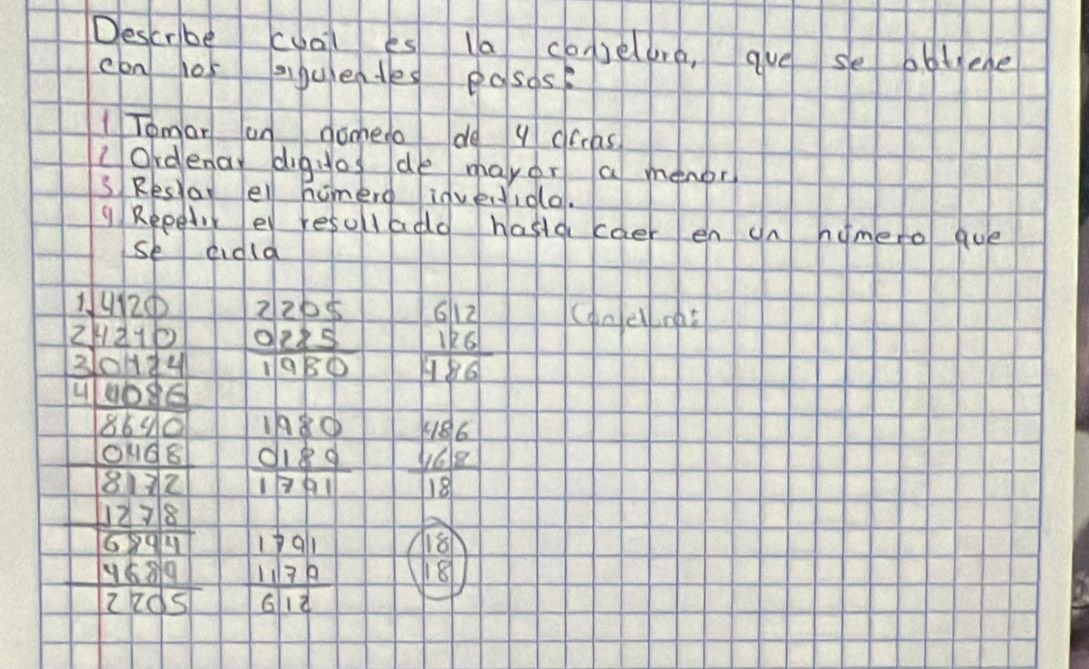 Describe cual es la conjetura, que se obtiene
con los siguientes pasos:
1 Tomar un número de 4 cifras
2 Ordenar dígitos de mayor a menor.
3 Restar el número invertido.
4 Repetir el resultado hasta caer en un número que
se cicla
1.4120 2205 612 Conjetura:
24210 0225 126
30124 1980 486
44086
8640 1980 486
0468 0189 468
8172 1791 18
1278
6894 1791 18
4689 1179 18
2205 612